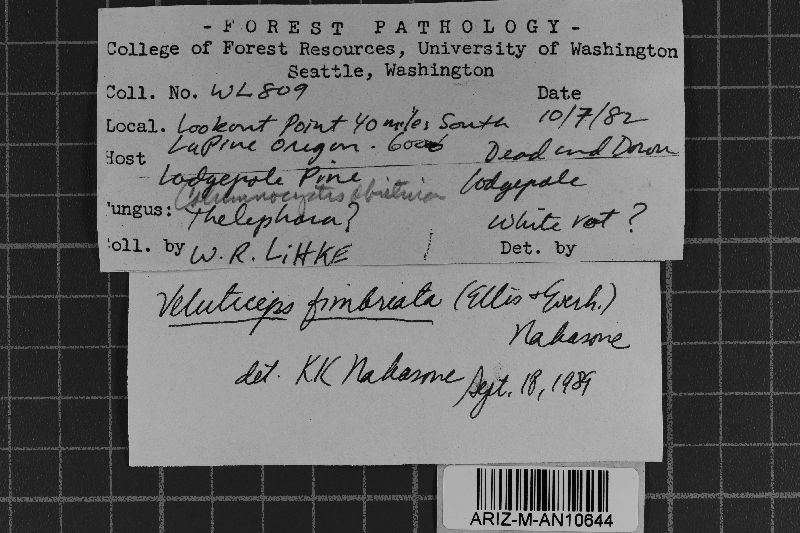 - FOREST PATHOLOGY -
College of Forest Resources, University of Washington
Seattle, Washington
Coll. No. WL809
Date
10/7/82
Local. Lookout Point 40 miles South
LaPine Oregon.
Host
Dead and Down
Lodgepole Pine
lodgepole
Columnocystis abietina
Fungus: Thelephora?
White rot?
Coll. by W.R. LittKE
Det. by
Veluticeps fimbriata (Ellis & Everh.)
Nakasone
det. KK Nakasone Sept. 18, 1989
ARIZ-M-AN10644